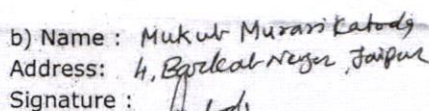 b) Name : Mukub Murari Katody
Address: 4, Barkat Nagar, Jaipur
Signature :